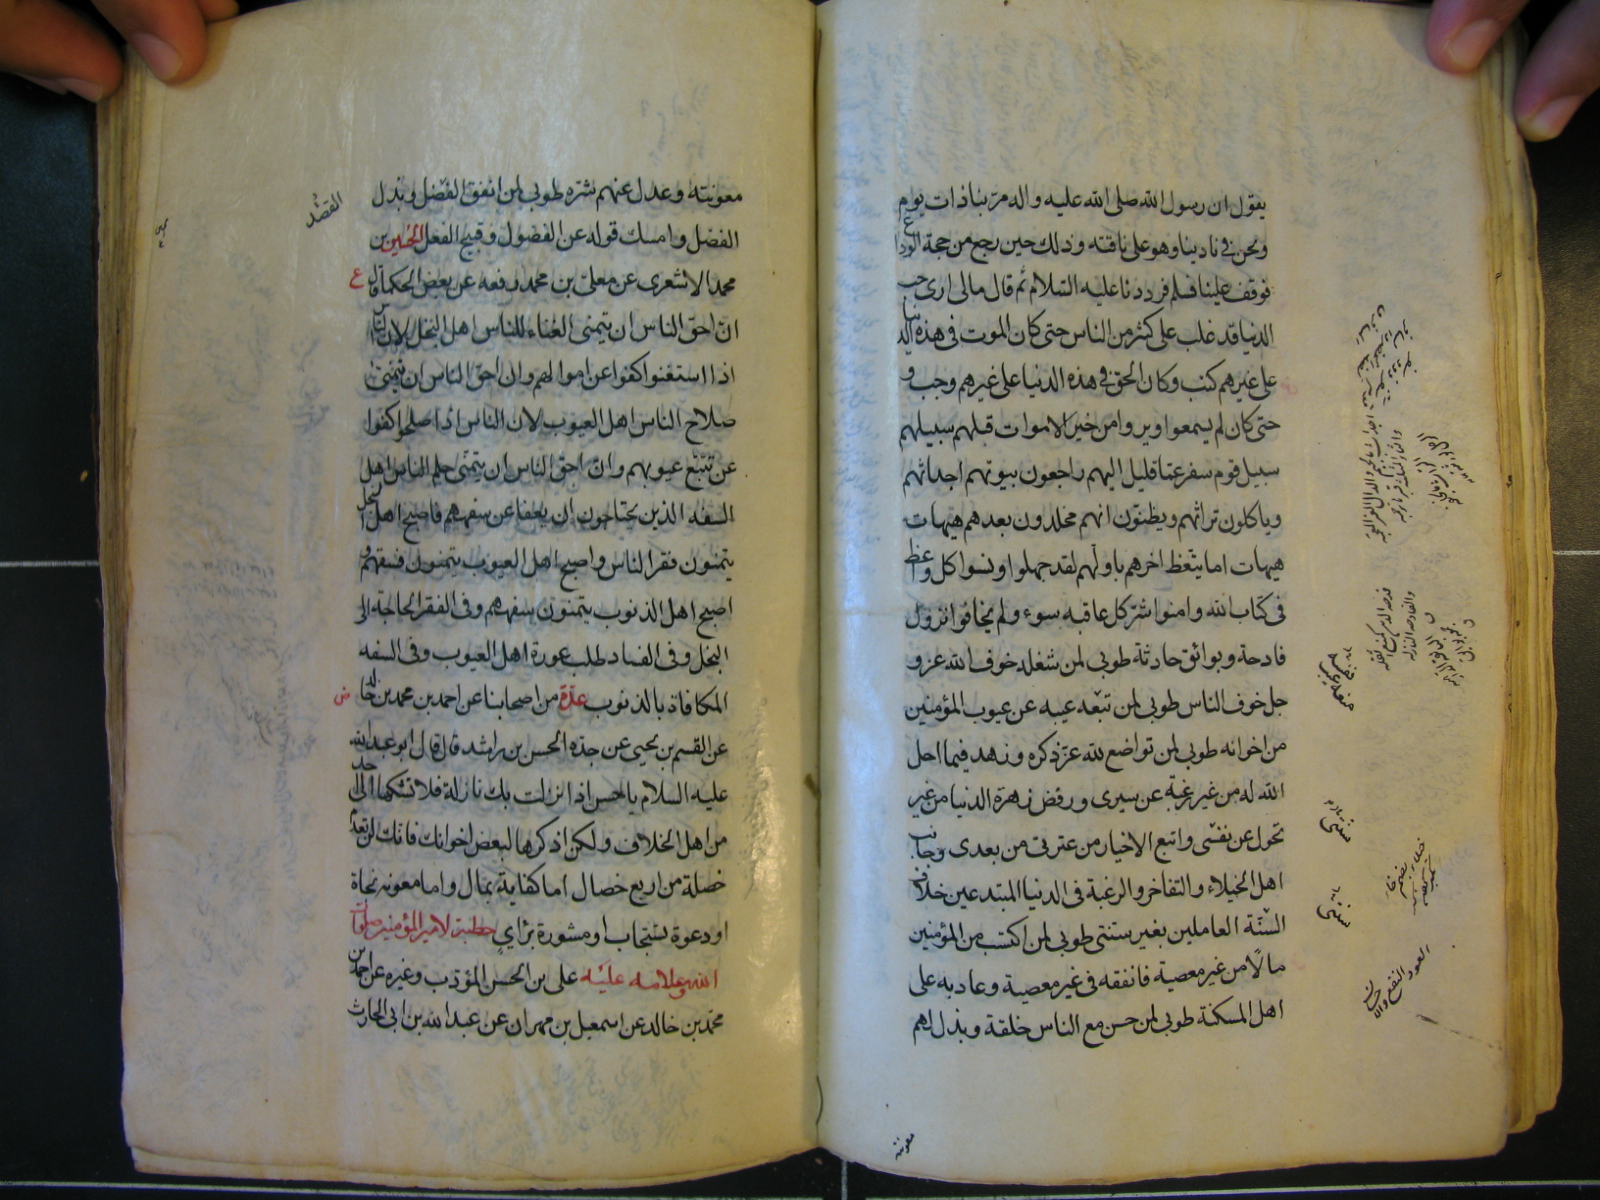 يقول ان رسول الله صلى الله عليه واله مر بنا ذات يوم
ونحن فى نادينا وهو على ناقته وذلك حين رجع من حجة الوداع
فوقف علينا فسلم فرددنا عليه السلام ثم قال مالى ارى حب
الدنيا قد غلب على كثير من الناس حتى كان الموت فى هذه الدنيا
على غيرهم كتب وكان الحق فى هذه الدنيا على غيرهم وجب و
حتى كان لم يسمعوا ويروا من خبر الاموات قبلهم سبيلهم
سبيل قوم سفر عما قليل اليهم راجعون بيوتهم اجداثهم
وياكلون تراثهم ويظنون انهم مخلدون بعدهم هيهات
هيهات اما يتعظ اخرهم باولهم لقد جهلوا ونسوا كل واعظ
فى كتاب الله وامنوا شر كل عاقبه سوء ولم يخافوا نزول
فادحة وبوائق حادثة طوبى لمن شغله خوف الله عز و
جل خوف الناس طوبى لمن تبعه عيبه عن عيوب المؤمنين
من اخوانه طوبى لمن تواضع لله عز ذكره وزهد فيما احل
الله له من غير رغبة عن سيرى ورفض زهرة الدنيا من غير
تحول عن نفسى واتبع الاخيار من عترتى من بعدى وجانب
اهل الخيلاء والتفاخر والرغبة فى الدنيا المبتدعين خلاف
السنة العاملين بغير سنتى طوبى لمن اكتسب من المؤمنين
مالا من غير معصية فانفقه فى غير معصية وعاد به على
اهل المسكنة طوبى لمن حسن مع الناس خلقه وبذل لهم
معونته
معونته وعدل عنهم بشره طوبى لمن انفق الفضل وبذل
الفضل
الفضل وامسك قوله عن الفضول وقبيح الفعل الحسين بن
محمد الاشعرى عن معلى بن محمد رفعه عن بعض الحكما قال
ع
ان احق الناس ان يتمنى الغناء للناس اهل البخل لان الناس
اذا استغنوا كفوا عن اموالهم وان احق الناس ان يتمنى
صلاح الناس اهل العيوب لان الناس اذا صلحوا كفوا
عن تتبع عيوبهم وان احق الناس ان يتمنى حلم الناس اهل
السفه الذين يحتاجون ان يعفا عن سفههم فاصبح اهل البخل
يتمنون فقر الناس واصبح اهل العيوب يتمنون فسقهم و
اصبح اهل الذنوب يتمنون سفههم وفى الفقر الحاجة الى
البخل وفى الفساد طلب عورة اهل العيوب وفى السفه
المكافاة بالذنوب عدة من اصحابنا عن احمد بن محمد بن خالد
ض
عن القسم بن يحيى عن جده الحسن بن راشد قال قال ابو عبد الله
عليه السلام يا حسن اذا نزلت بك نازلة فلا تشكها الى احد
من اهل الخلاف ولكن اذكرها لبعض اخوانك فانك لن تعدم
خصلة من اربع خصال اما كفاية بمال واما معونه بجاة
او دعوة تستجاب او مشورة براى خطبة لامير المؤمنين صلوات
الله وسلامه عليه على بن الحسن المؤدب وغيره عن احمد بن
محمد بن خالد عن اسمعيل بن مهران عن عبد الله بن ابى الحارث